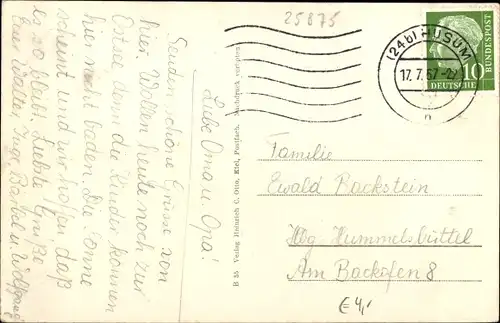 25875
Liebe Oma u. Opa!
Senden schöne Grüsse von
hier. Wollen heute noch zur
Ostsee denn die Kinder können
hier nicht baden. Die Sonne
scheint und wir hoffen daß
es so bleibt. Liebste Grüße
Euer Walter, Inge, Bärbel u. Wolfgang
B 35 Verlag Heinrich C. Otto, Kiel, Postfach.
(24b) HUSUM
17. 7. 67
DEUTSCHE
BUNDESPOST
10
Familie
Ewald Backstein
Hbg. Hummelsbüttel
Am Backofen 8
€4,-